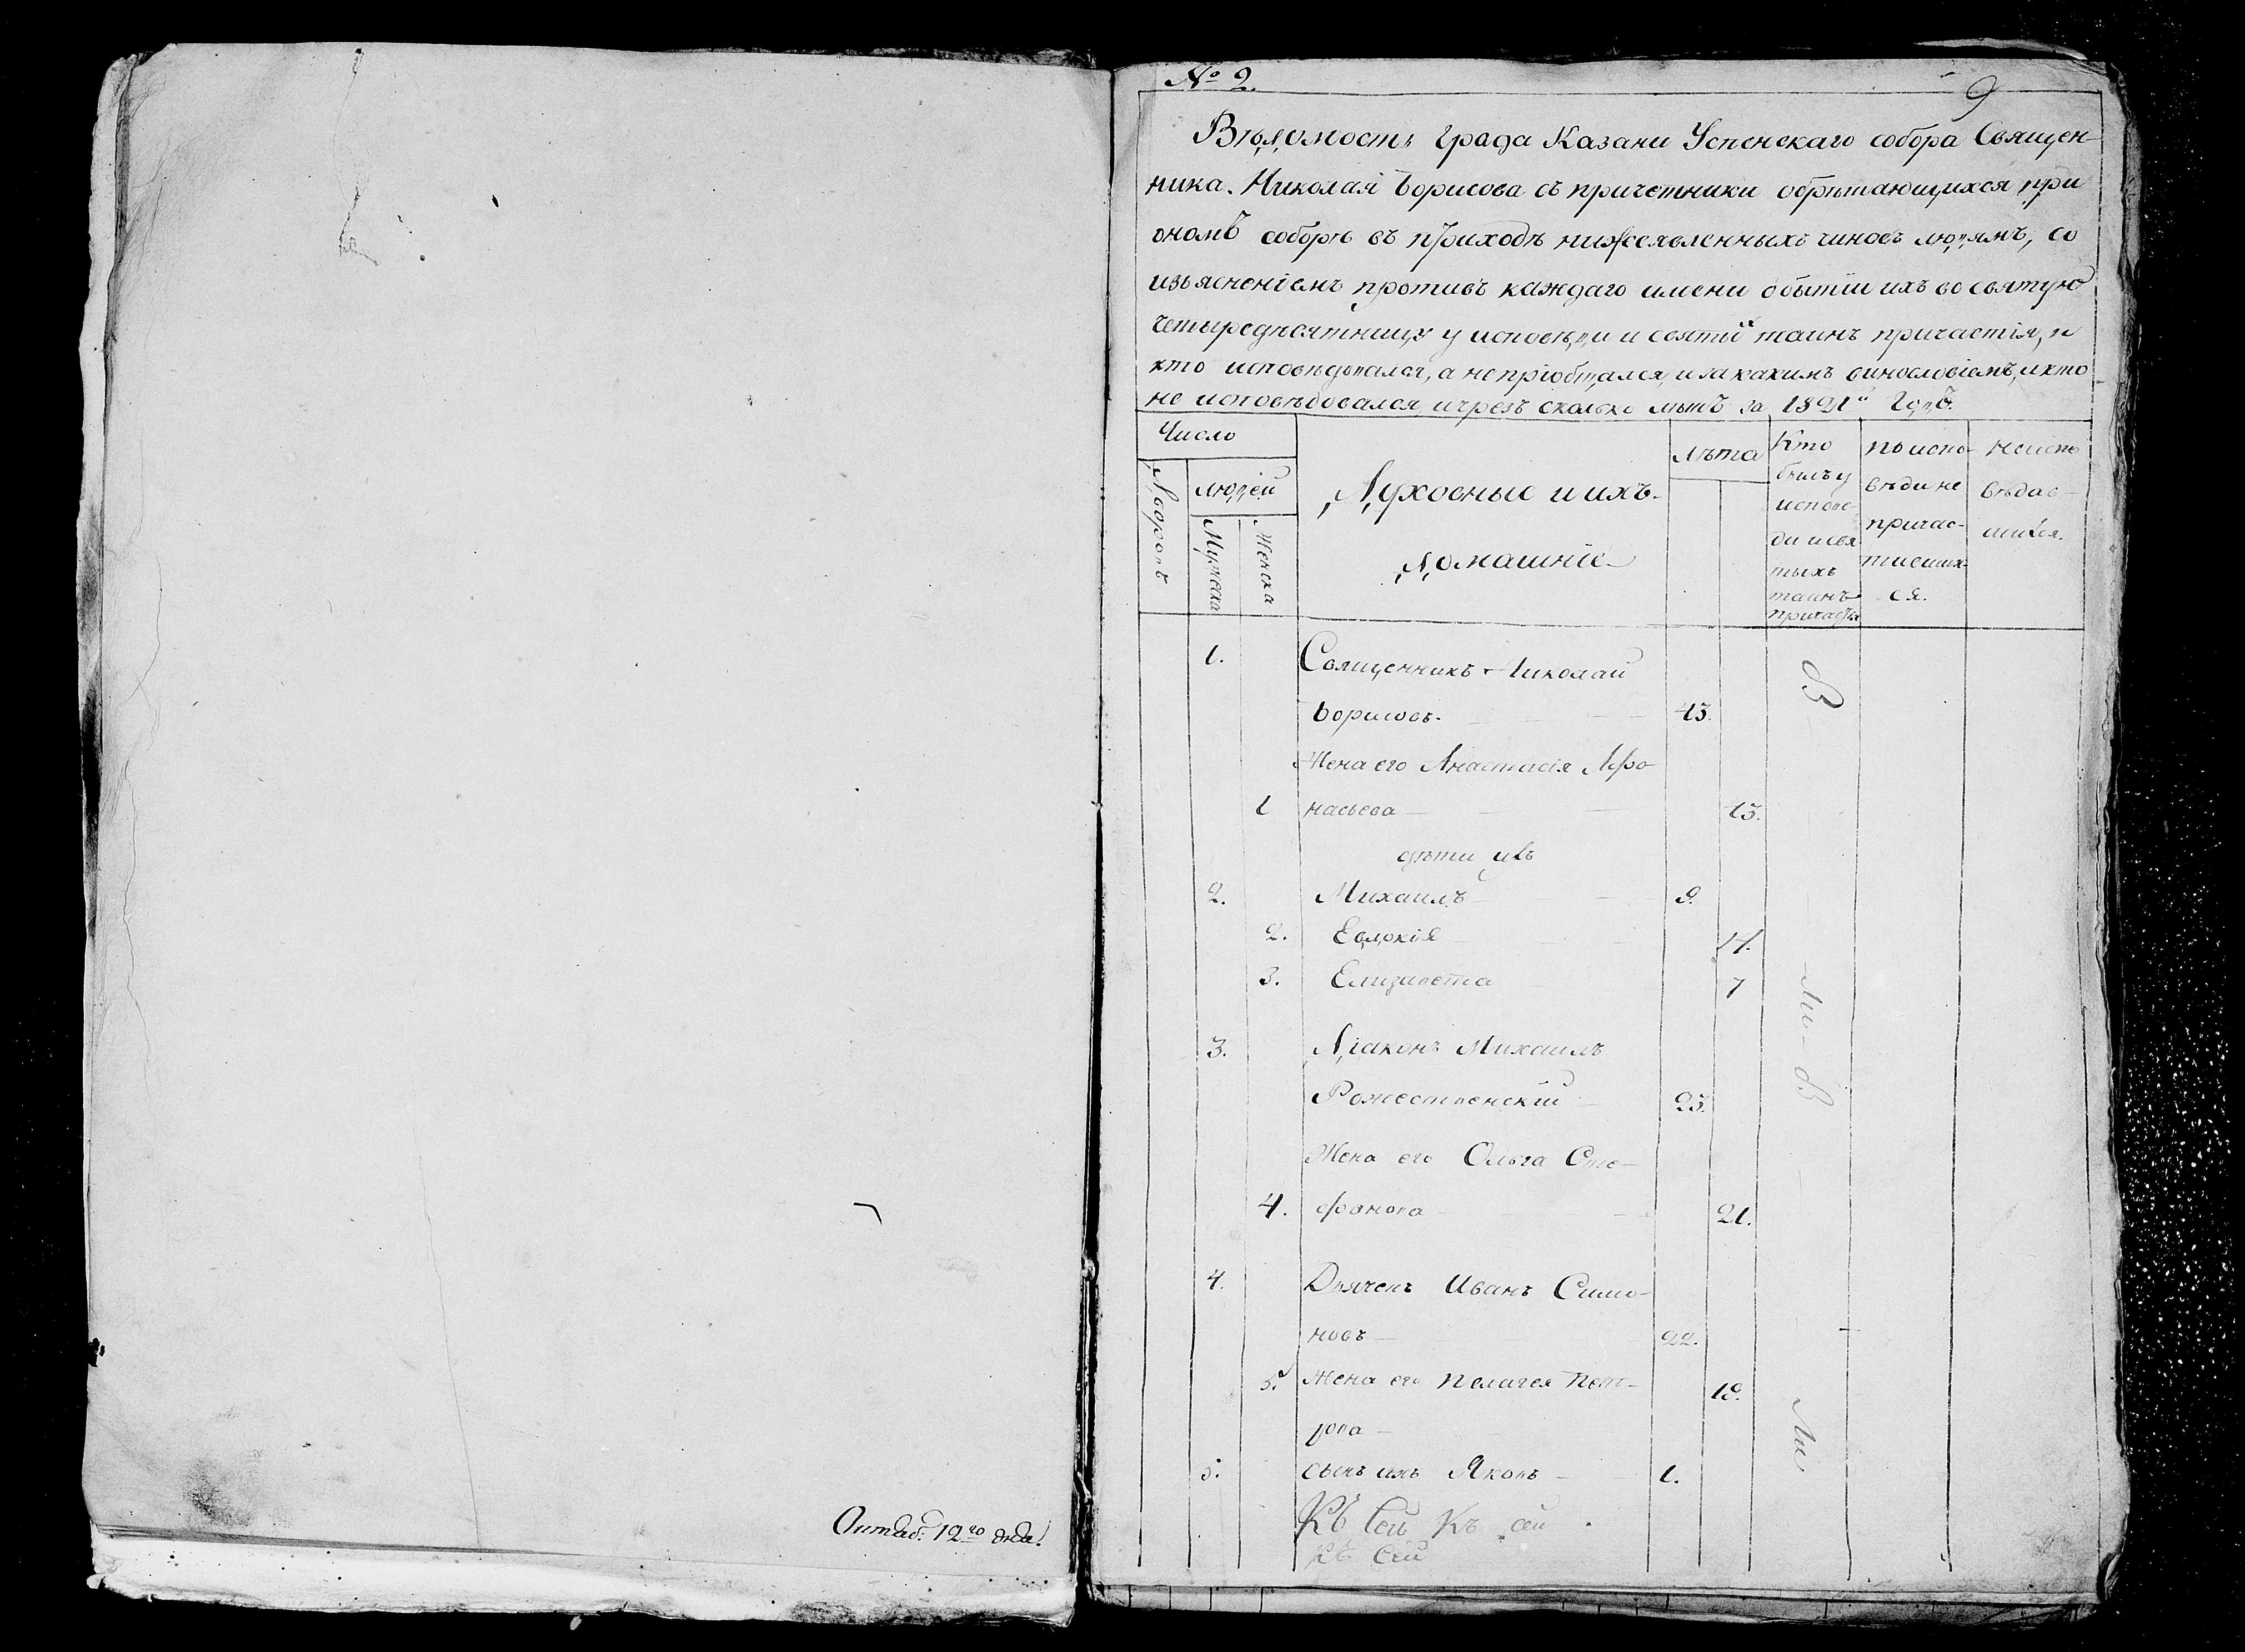 Октяб. 12го дня!
№ 2.
9
Вѣдомость града Казани Успенскаго собора Священ-
ника Николая Борисова съ причетники обрѣтающихся при
ономъ соборѣ въ приходѣ нижеявленныхъ чиновъ людямъ, со
изъясненіемъ противъ каждаго имени о бытіи ихъ во святую
четыредесятницу у исповѣди и святыхъ таинъ причастія, и
кто исповѣдывался, а не пріобщался, и за какимъ винословіемъ, и кто
не исповѣдовался и чрезъ сколько лѣтъ за 1821й годъ.
Число
Дворовъ
людей
Мужеска
Женска
Духовные и ихъ
домашніе
лѣта
Кто
былъ у
испове-
ди и свя
тыхъ
таинъ
причастія
по испо-
вѣди не
причас-
тивших-
ся.
неиспо
вѣдав-
шихся.
1. Священникъ Николай
Борисовъ. 43.
Жена его Анастасія Афо
1 насьева 43.
дѣти ихъ
2. Михаилъ 9.
2. Евдокія 14.
3. Елизавета 7
3. Діаконъ Михаилъ
Рожественскій 23.
Жена его Ольга Сте-
4. фанова 21.
4. Дьячекъ Иванъ Симо-
новъ 22.
5. Жена его Пелагея Пет- 19.
рова
5. сынъ ихъ Яковъ 1.
Къ сей Къ сей
Къ сей